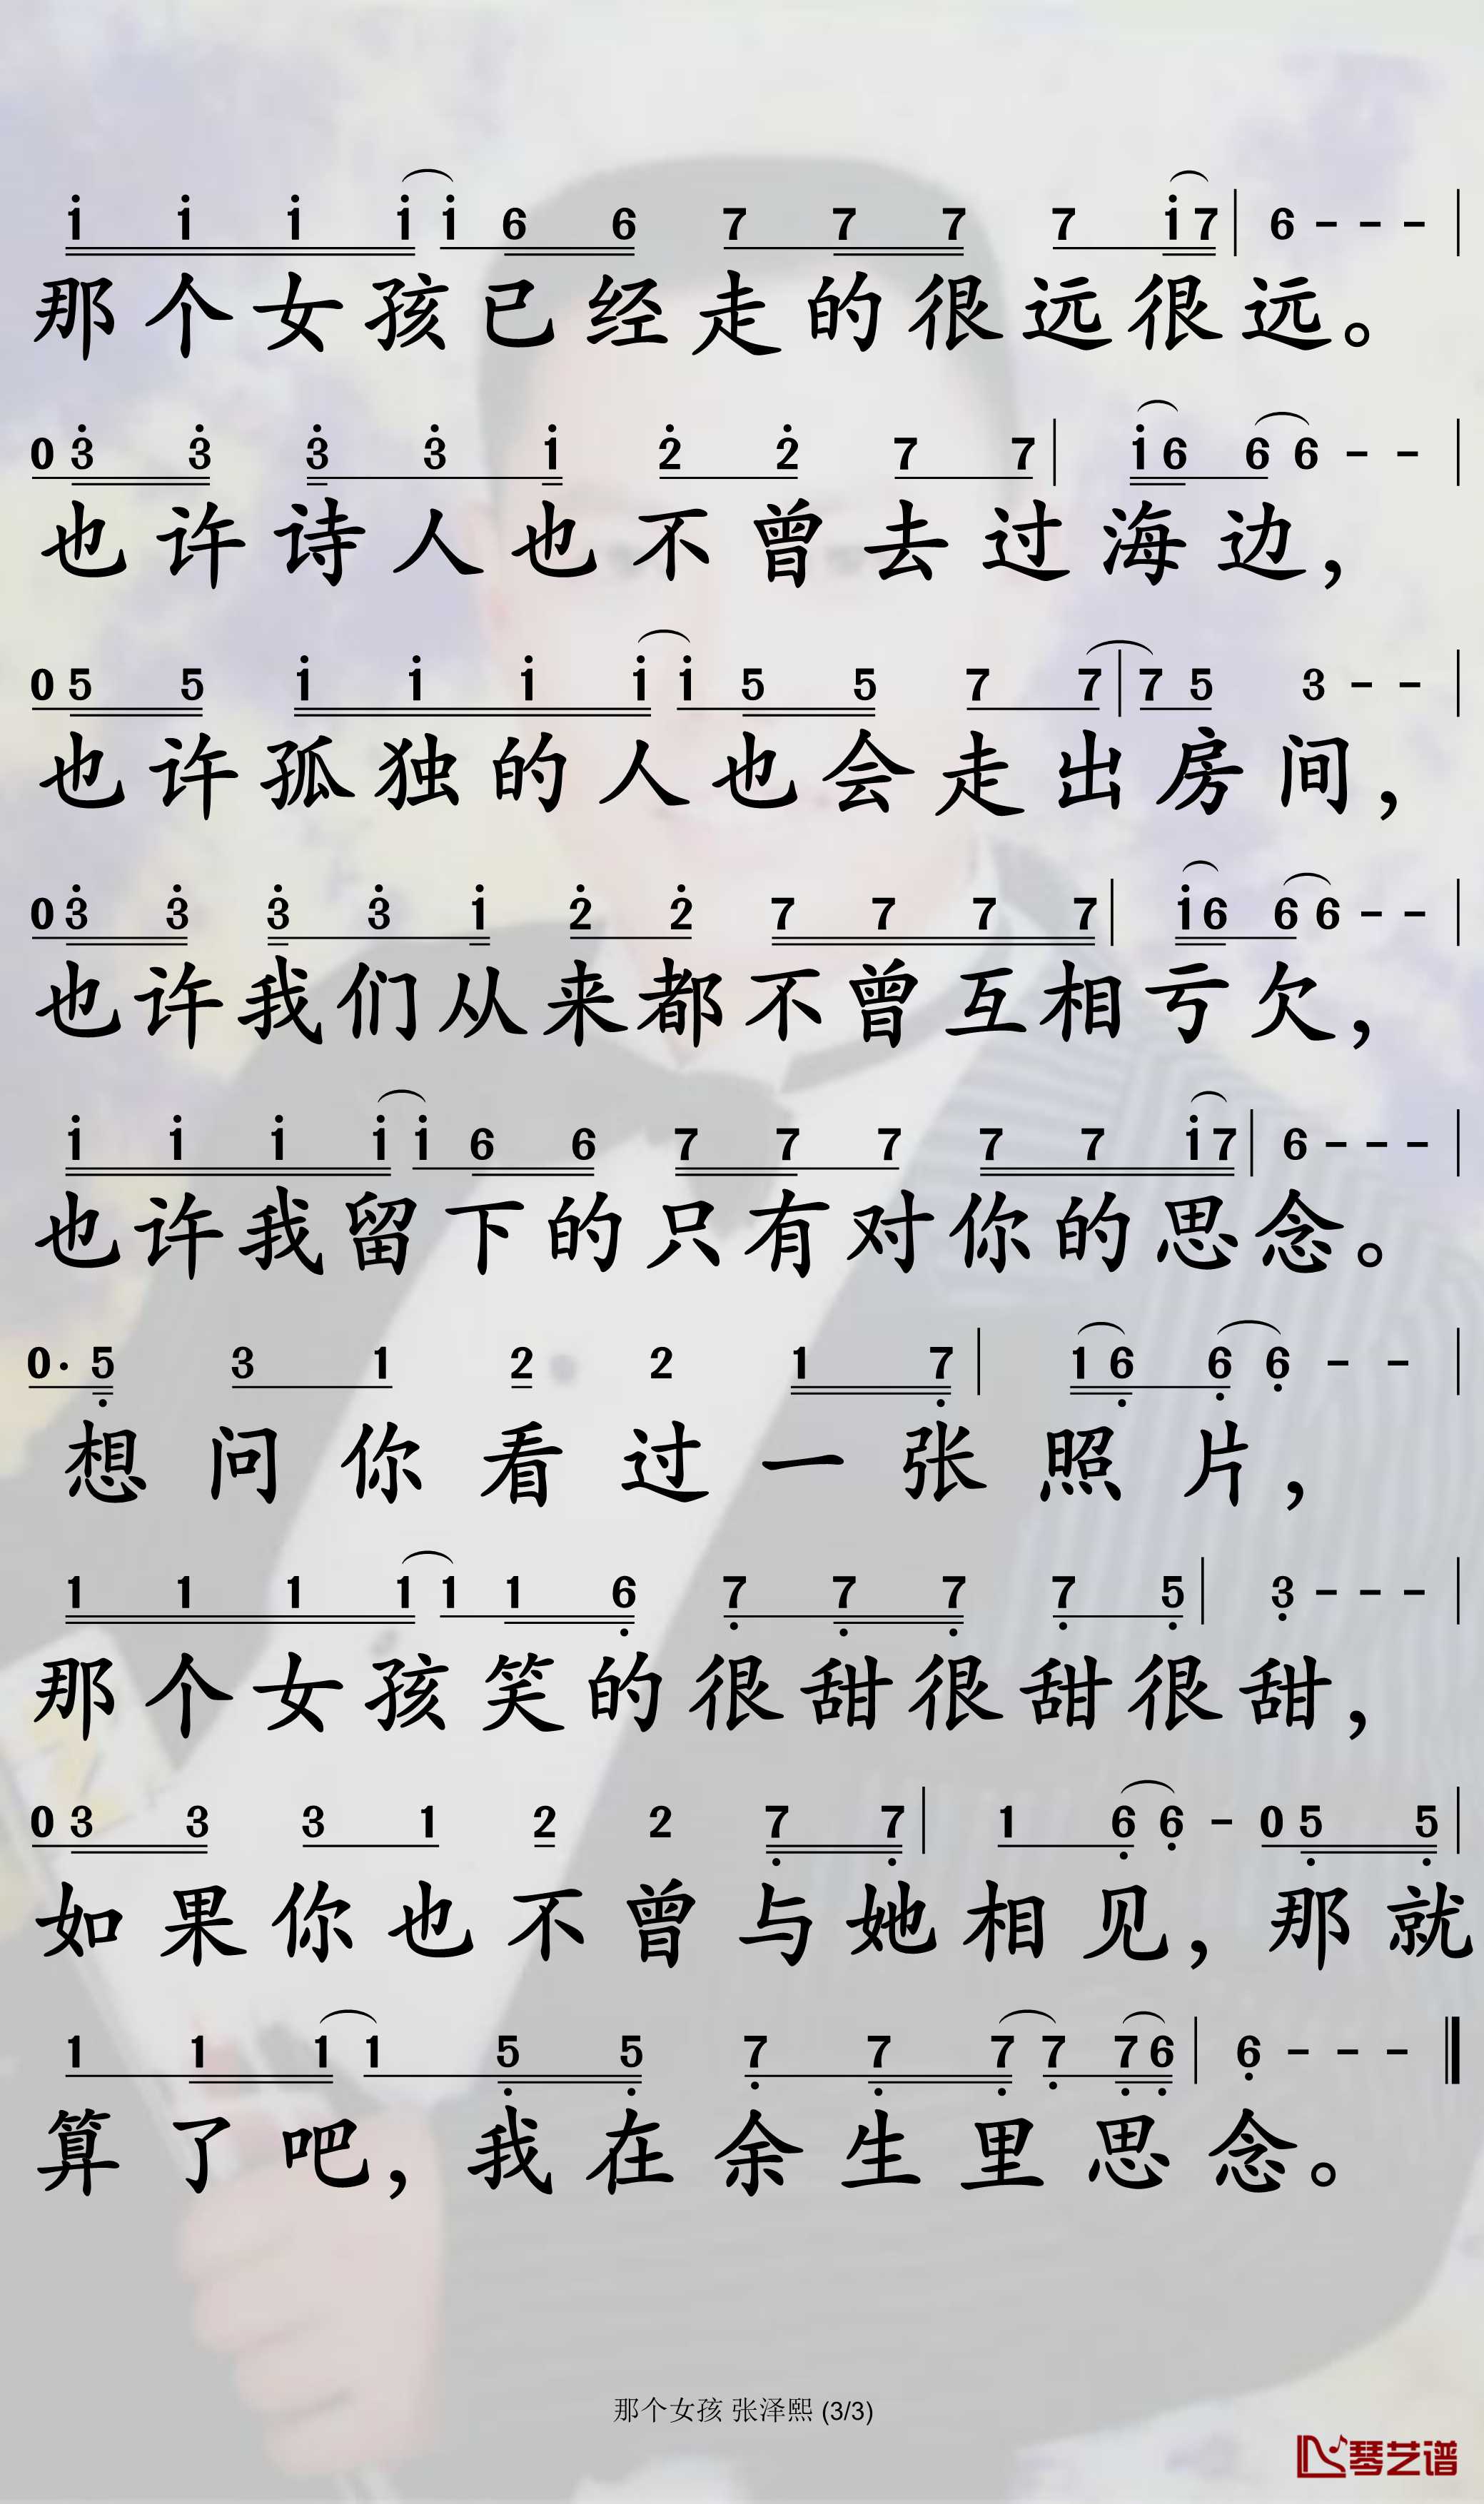 i i i i i 6 6 7 7 7 7 i 7 | 6 - - - |
那个女孩已经走的很远很远。
0 3 3 3 3 i 2 2 7 7 | i 6 6 6 - - |
也许诗人也不曾去过海边，
0 5 5 i i i i i 5 5 7 7 | 7 5 3 - - |
也许孤独的人也会走出房间，
0 3 3 3 3 i 2 2 7 7 7 7 | i 6 6 6 - - |
也许我们从来都不曾互相亏欠，
i i i i i 6 6 7 7 7 7 7 i 7 | 6 - - - |
也许我留下的只有对你的思念。
0· 5 3 1 2 2 1 7 | 1 6 6 6 - - |
想问你看过一张照片，
1 1 1 1 1 1 6 7 7 7 7 5 | 3 - - - |
那个女孩笑的很甜很甜很甜，
0 3 3 3 1 2 2 7 7 | 1 6 6 - 0 5 5 |
如果你也不曾与她相见，那就
1 1 1 1 5 5 7 7 7 7 7 6 | 6 - - - ‖
算了吧，我在余生里思念。
那个女孩 张泽熙 (3/3)
琴艺谱